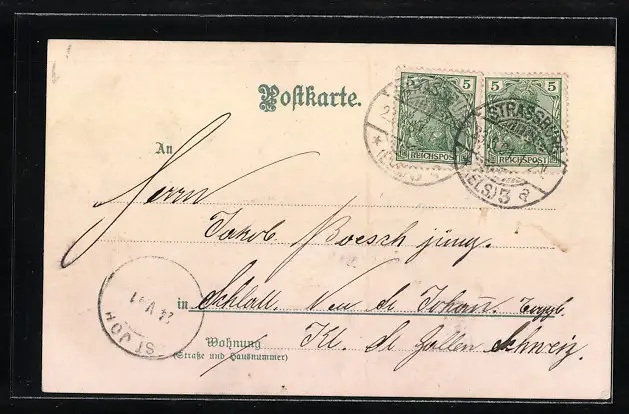 5 5 5 5
REICHSPOST REICHSPOST
STRASSBURG
(ELS.) 3 a
Postkarte.
An
Herrn
Jakob Boesch jung.
in Schlatt. Neu St. Johann. Toggb.
Kt. St Gallen Schweiz.
Wohnung
(Straße und Hausnummer)
ST. JOH